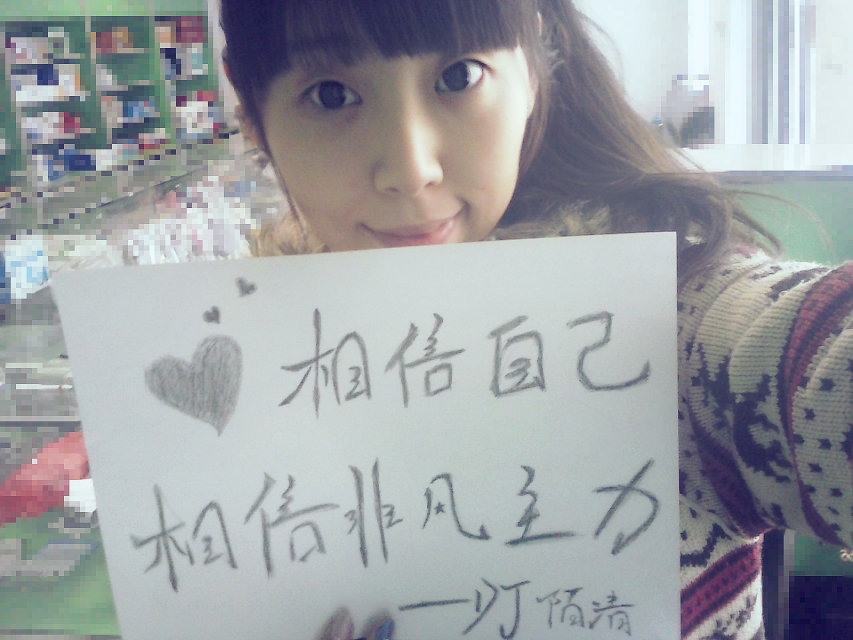 相信自己
相信非凡主力
—汀陌清